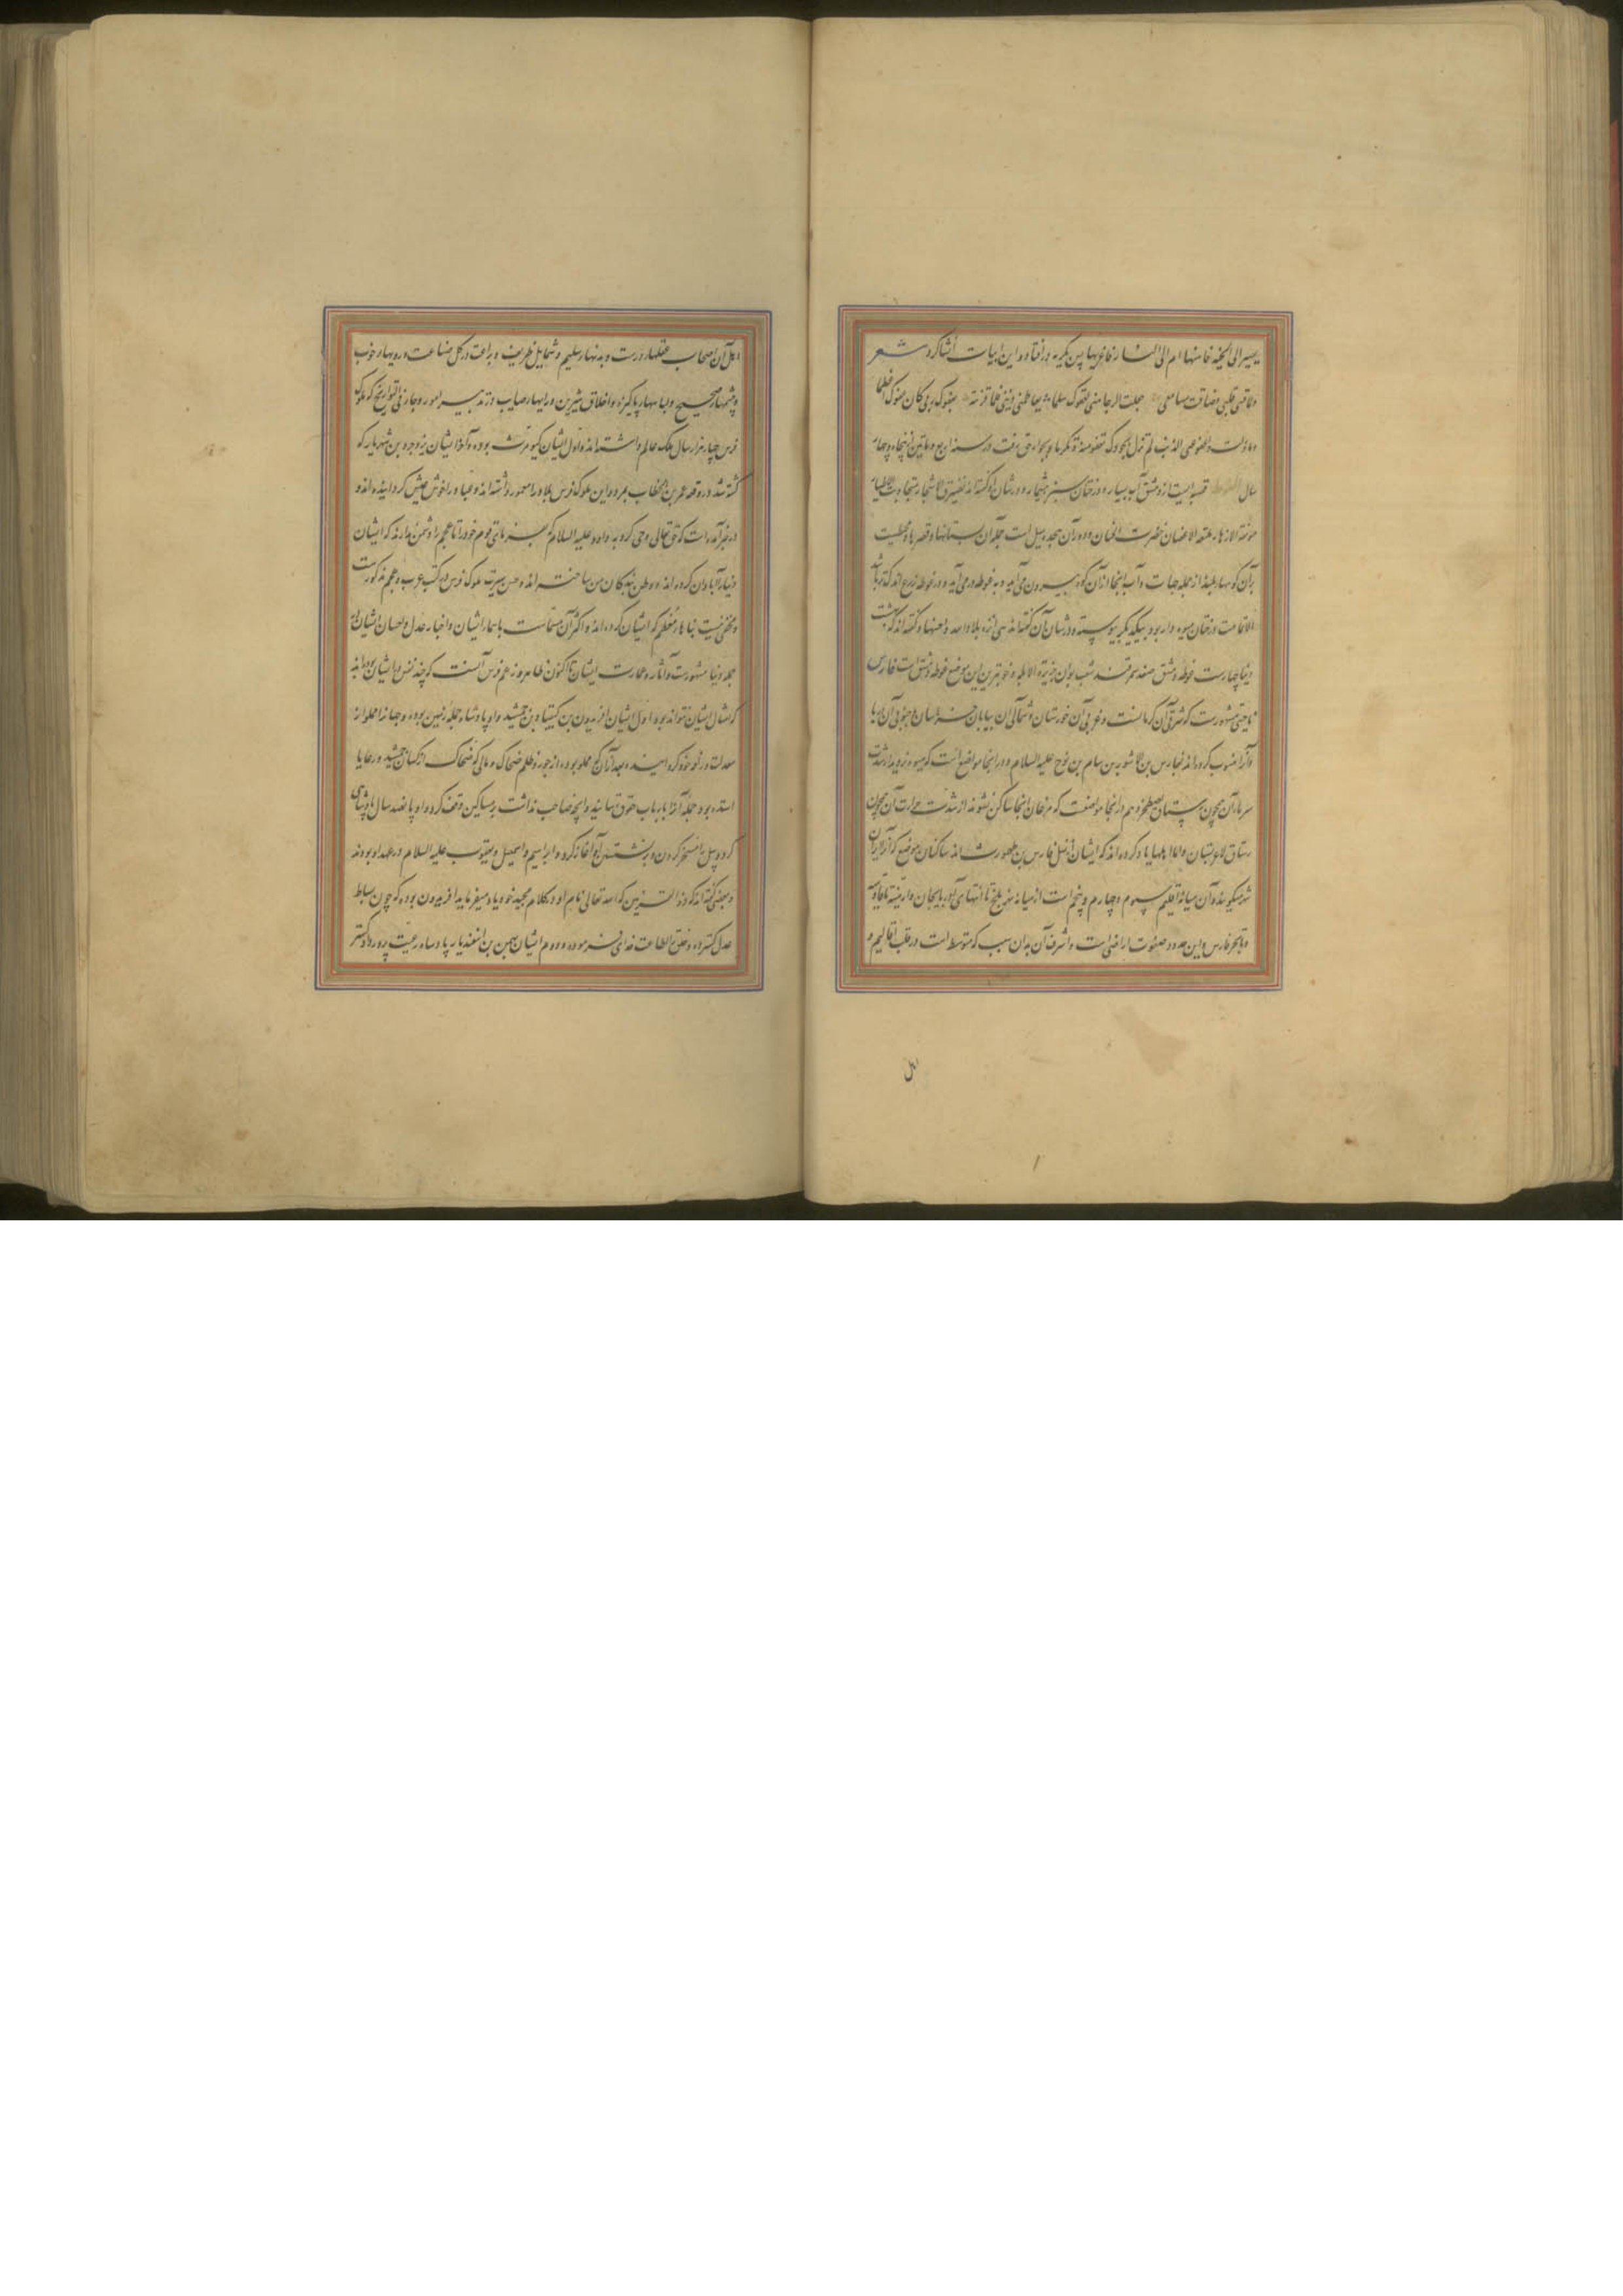 یصیر الی الجنة فاهنها ام الی النار فاعزیها پس بگریه در افتاد و این ابیات انشا کرد شعر
ولما قسی قلبی وضاقت مسامعی جعلت الرجا منی لعفوک سلما تعاظمنی ذنبی فلما قرنته بعفوک ربی کان عفوک اعظما
وما زلت ذا عفو عن الذنب لم تزل تجود وتعفو منة وتکرما و بجوار حق رفت در سنه اربع و مأتین پنجاه و چهار
سال الغوطه قصبه ایست از دمشق آب بسیار و درختان سبز بیشمار و در شان او گفته اند نضیرة الاشجار متجاوبة الاطیار
مونقة الازهار ملتفة الاغصان خضرت الجنان و دور آن هجده میل است جمله آن بستانها و قصرها و محیطست
بر آن کوههای بلند از جمله جهات و آب اینجا از آن کوه بیرون می آید و به غوطه در می آید و در غوطه
الاقامت درختان میوه دار بود بیکدیگر پیوسته و در شان آن گفته اند هی انزه بلاد الله و احسنها و گفته اند که بهشت
دنیا چهارست غوطه دمشق صغد سمرقند شعب بوان جزیره الابله و خوبترین این مواضع غوطه دمشق است فارس
ناحیتی مشهورست که شرقی آن کرمانست و غربی آن خوزستان و شمالی آن بیابان خراسان و جنوبی آن دریا
و آنرا منسوب کرده اند بفارس بن لاشور بن سام بن نوح علیه السلام و در اینجا مواضع است که میوه نروید از شدت
سرما آن همچون رستاق اصطخر و هم در اینجا مواضعست که مرغان اینجا ساکن نشوند از شدت حرارت آن همچون
رستاق الاغرستان و اما اهلها یاد کرده اند که ایشان از نسل فارس بن طهمورث اند ساکنان موضع که آنرا ایران
شهر میگویند و آن میانه اقلیم سیوم و چهارم و پنجم است از میانه نهر بلخ تا انتهای آذربایجان و ارمینیه تا قادسیه
و تا بحر فارس و این حدود صفوت اراضی است و اشرف آن بدان سبب که متوسط است در قلب اقالیم و
اهل
اهل آن اصحاب عقلهاء درست و بدنهاء سلیم و شمایل ظریف و براعت در کل صناعت و رویهاء خوب
و چشمهاء صحیح و لباسهاء پاکیزه و اخلاق شیرین و رایهاء صایب در تدبیر امور و جاء فی التواریخ که ملوک
فرس چهار هزار سال ملک عالم داشته اند و اول ایشان کیومرث بوده و آخر ایشان یزدجرد بن شهریار که
کشته شد در وقعه عمر بن الخطاب بمرو و این ملوک فرس بلاد را معمور داشته اند و عباد را خوش عیش گردانیده اند و
در خبر آمده است که حق تعالی وحی کرد به داود علیه السلام که بفرمای قوم خود را تا عجم را دشمن ندارند که ایشان
دنیا را آبادان کرده اند و وطن بندگان من ساخته اند و حسن سیرت ملوک فرس در کتب عرب و عجم مذکورست
و مخفی نیست بناهاء معظم که ایشان کرده اند و اکثر آن مسماست باسماء ایشان و اخبار عدل و احسان ایشان در
جمله دنیا مشهورست و آثار و عمارت ایشان تا اکنون ظاهر و زعم فرس آنست که چند نفس از ایشان بوده اند
که مثال ایشان نتواند بود اول ایشان افریدون بن کیقباد بن جمشید و او پادشاه جمله زمین بوده و جهانرا مملو از
معدلت و رفوخود کردانیده بعد از آن که مملو بوده از جور و ظلم ضحاک و مالی که ضحاک از کسان جمشید و رعایا
استده بود جمله آنرا بارباب حقوق رسانید و آنچه صاحب نداشت بر مساکین وقف کرد و او پانصد سال پادشاهی
کرد و پیل را مسخر کردن و برنشستن او آغاز کرد و ابراهیم و اسمعیل و یعقوب علیه السلام در عهد او بودند
و بعضی گفته اند که ذو القرنین که الله تعالی نام او در کلام مجید خود یاد میفرماید افریدون بوده که چون بساط
عدل گسترد و خلق را بطاعت خدای فرموده و دوم ایشان بهمن بن اسفندیار پادشاه رعیت پرور دادگستر